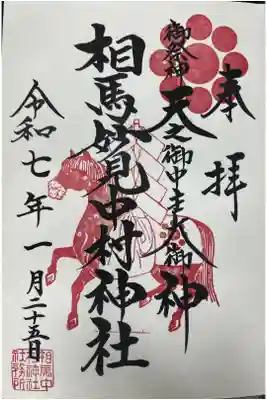 奉拝
御祭神 天之御中主大御神
相馬妙見中村神社
令和七年一月二十五日
相馬中
村神社
社務所